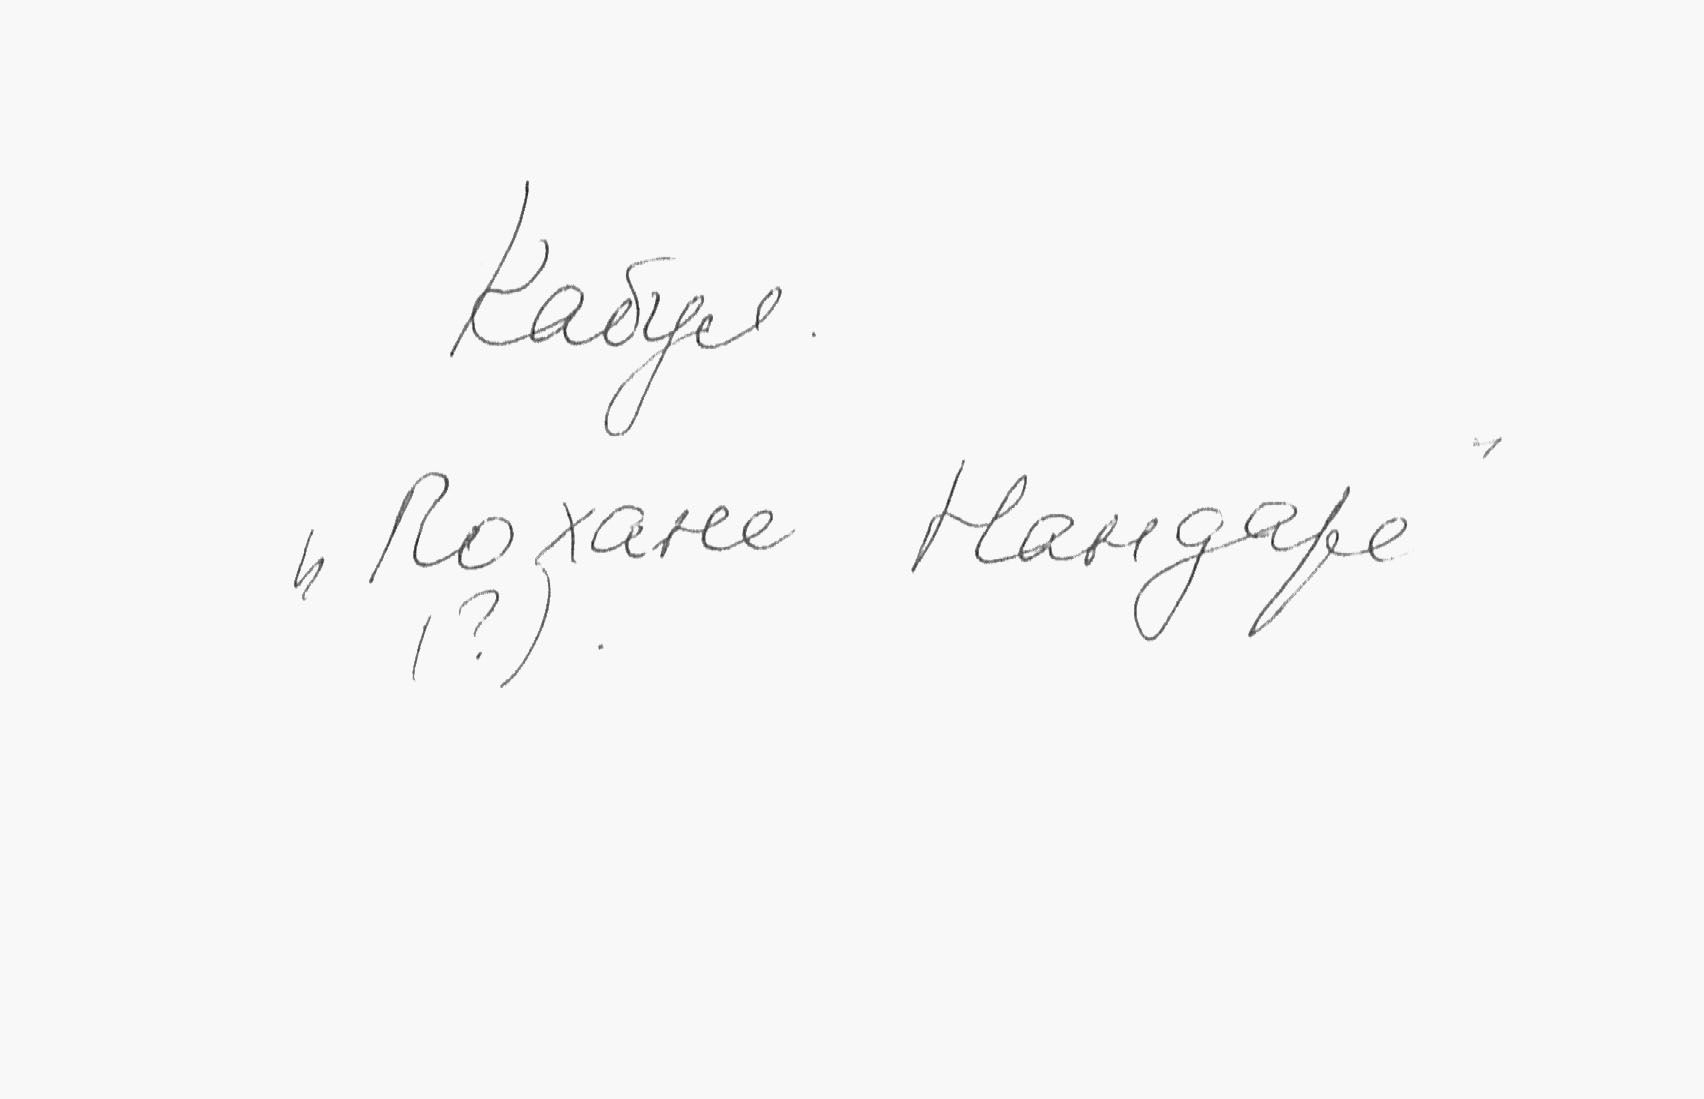 Кабул.
„Похане Нандаре"
(?).